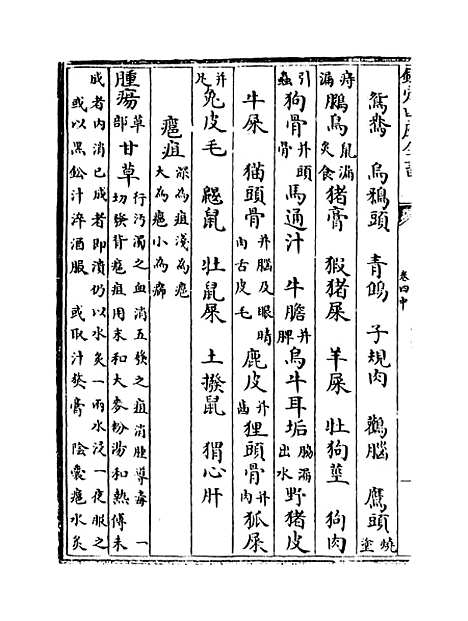 欽定四庫全書
卷四中
鴛鴦　烏鴉頭　青鶂　子規肉　鸛腦　鷹頭燒塗
痔漏鵰鳥鼠漏炙食　猪膏　豭猪屎　羊屎　牡狗莖　狗肉
引蟲狗骨并頭骨　馬通汁　牛膽并脾　烏牛耳垢腦漏出水　野猪皮
牛屎　猫頭骨并腦及眼睛肉舌皮毛　鹿皮并齒　狸頭骨并肉　狐屎
并屎兔皮毛　鼴鼠　牡鼠屎　土撥鼠　猬心肝
癰疽深為疽淺為癰大為癰小為癤
腫瘍草部甘草行污濁之血消五發之疽消腫導毒　一切發背癰疽用末和大麥粉湯和熱傅未
成者内消已成者即潰仍以水炙一兩水浸一夜服之
或以黑鉛汁淬酒服　或取汁熬膏　陰囊癰水炙